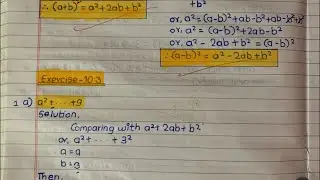 ∴ (a+b)² = a² + 2ab + b²
+b²
or, a² = (a-b)² + ab - b² + ab - b² + b²
or, a² = (a-b)² + 2ab - b²
or, a² - 2ab + b² = (a-b)²
∴ (a-b)² = a² - 2ab + b²
Exercise - 10.3
1 a) a² + ... + 9
Solution,
Comparing with a² + 2ab + b²
or, a² + ... + 3²
a = a
b = 3
Then,